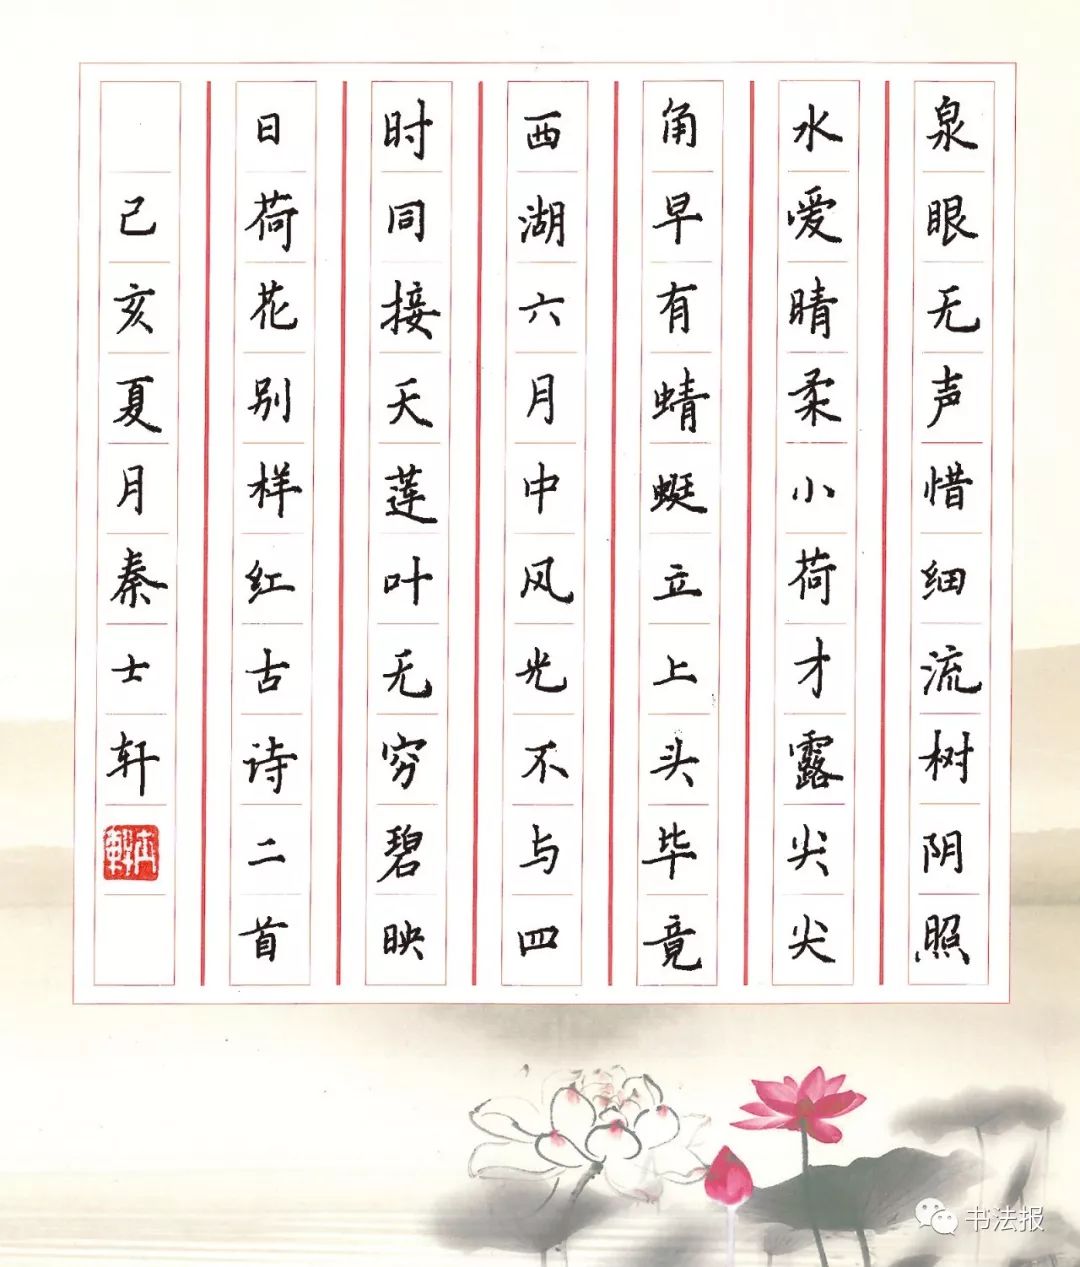 泉眼无声惜细流树阴照
水爱晴柔小荷才露尖尖
角早有蜻蜓立上头毕竟
西湖六月中风光不与四
时同接天莲叶无穷碧映
日荷花别样红古诗二首
己亥夏月秦士轩
士轩
书法报